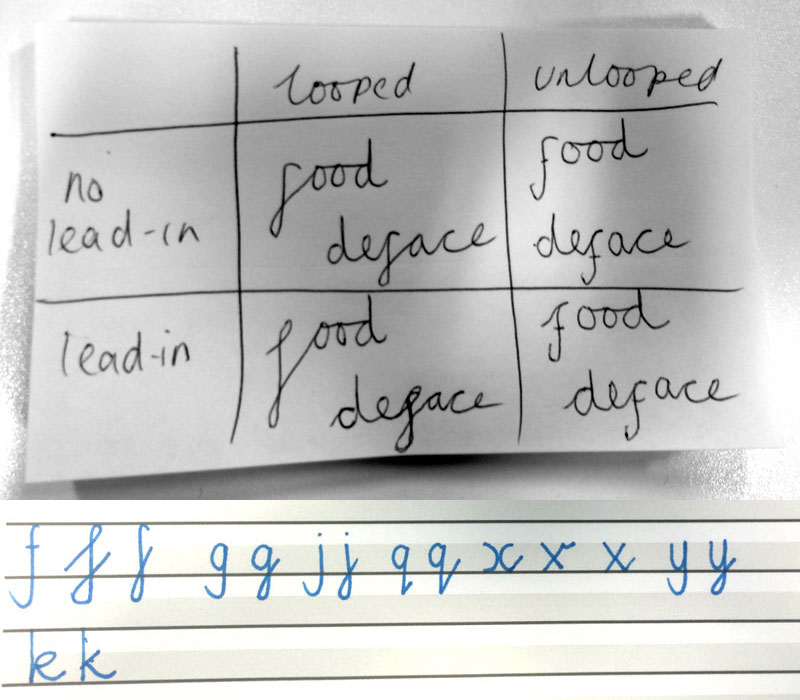 looped unlooped
no lead-in
food food
deface deface
lead-in
food food
deface deface
f f f g g j j q q x x x y y
k k